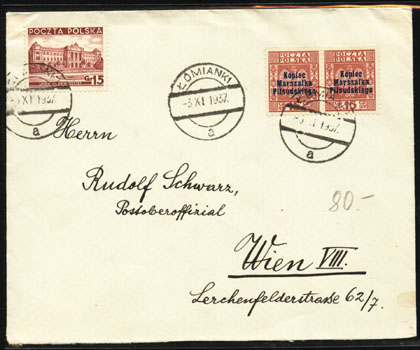 POCZTA POLSKA
GR 15
ŁOMIANKI
-3 XI 1937
a
POCZTA POLSKA
Kopiec Marszałka Piłsudskiego
15
POCZTA POLSKA
Kopiec Marszałka Piłsudskiego
15
-3 XI 1937
a
XI 1937
a
Herrn
Rudolf Schwarz,
Postoberoffizial
80.-
Wien VIII.
Lerchenfelderstraße 62/7.